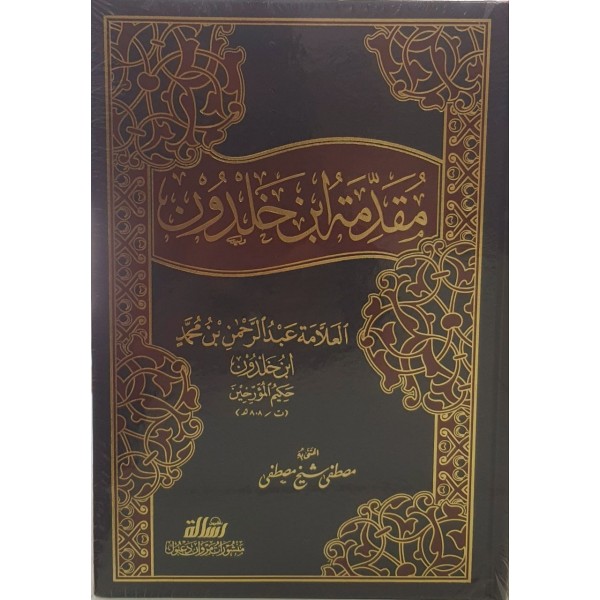 مُقَدِّمَةُ ابْنِ خَلْدُوْن
العَلَّامَة عَبْدُ الرَّحْمٰنِ بْنُ مُحَمَّد
ابْنِ خَلْدُوْن
حَكِيْمُ المُؤَرِّخِيْنَ
(ت/٨٠٨هـ)
اعتنى به
مصطفى شيخ مصطفى
رسالة
ناشرون